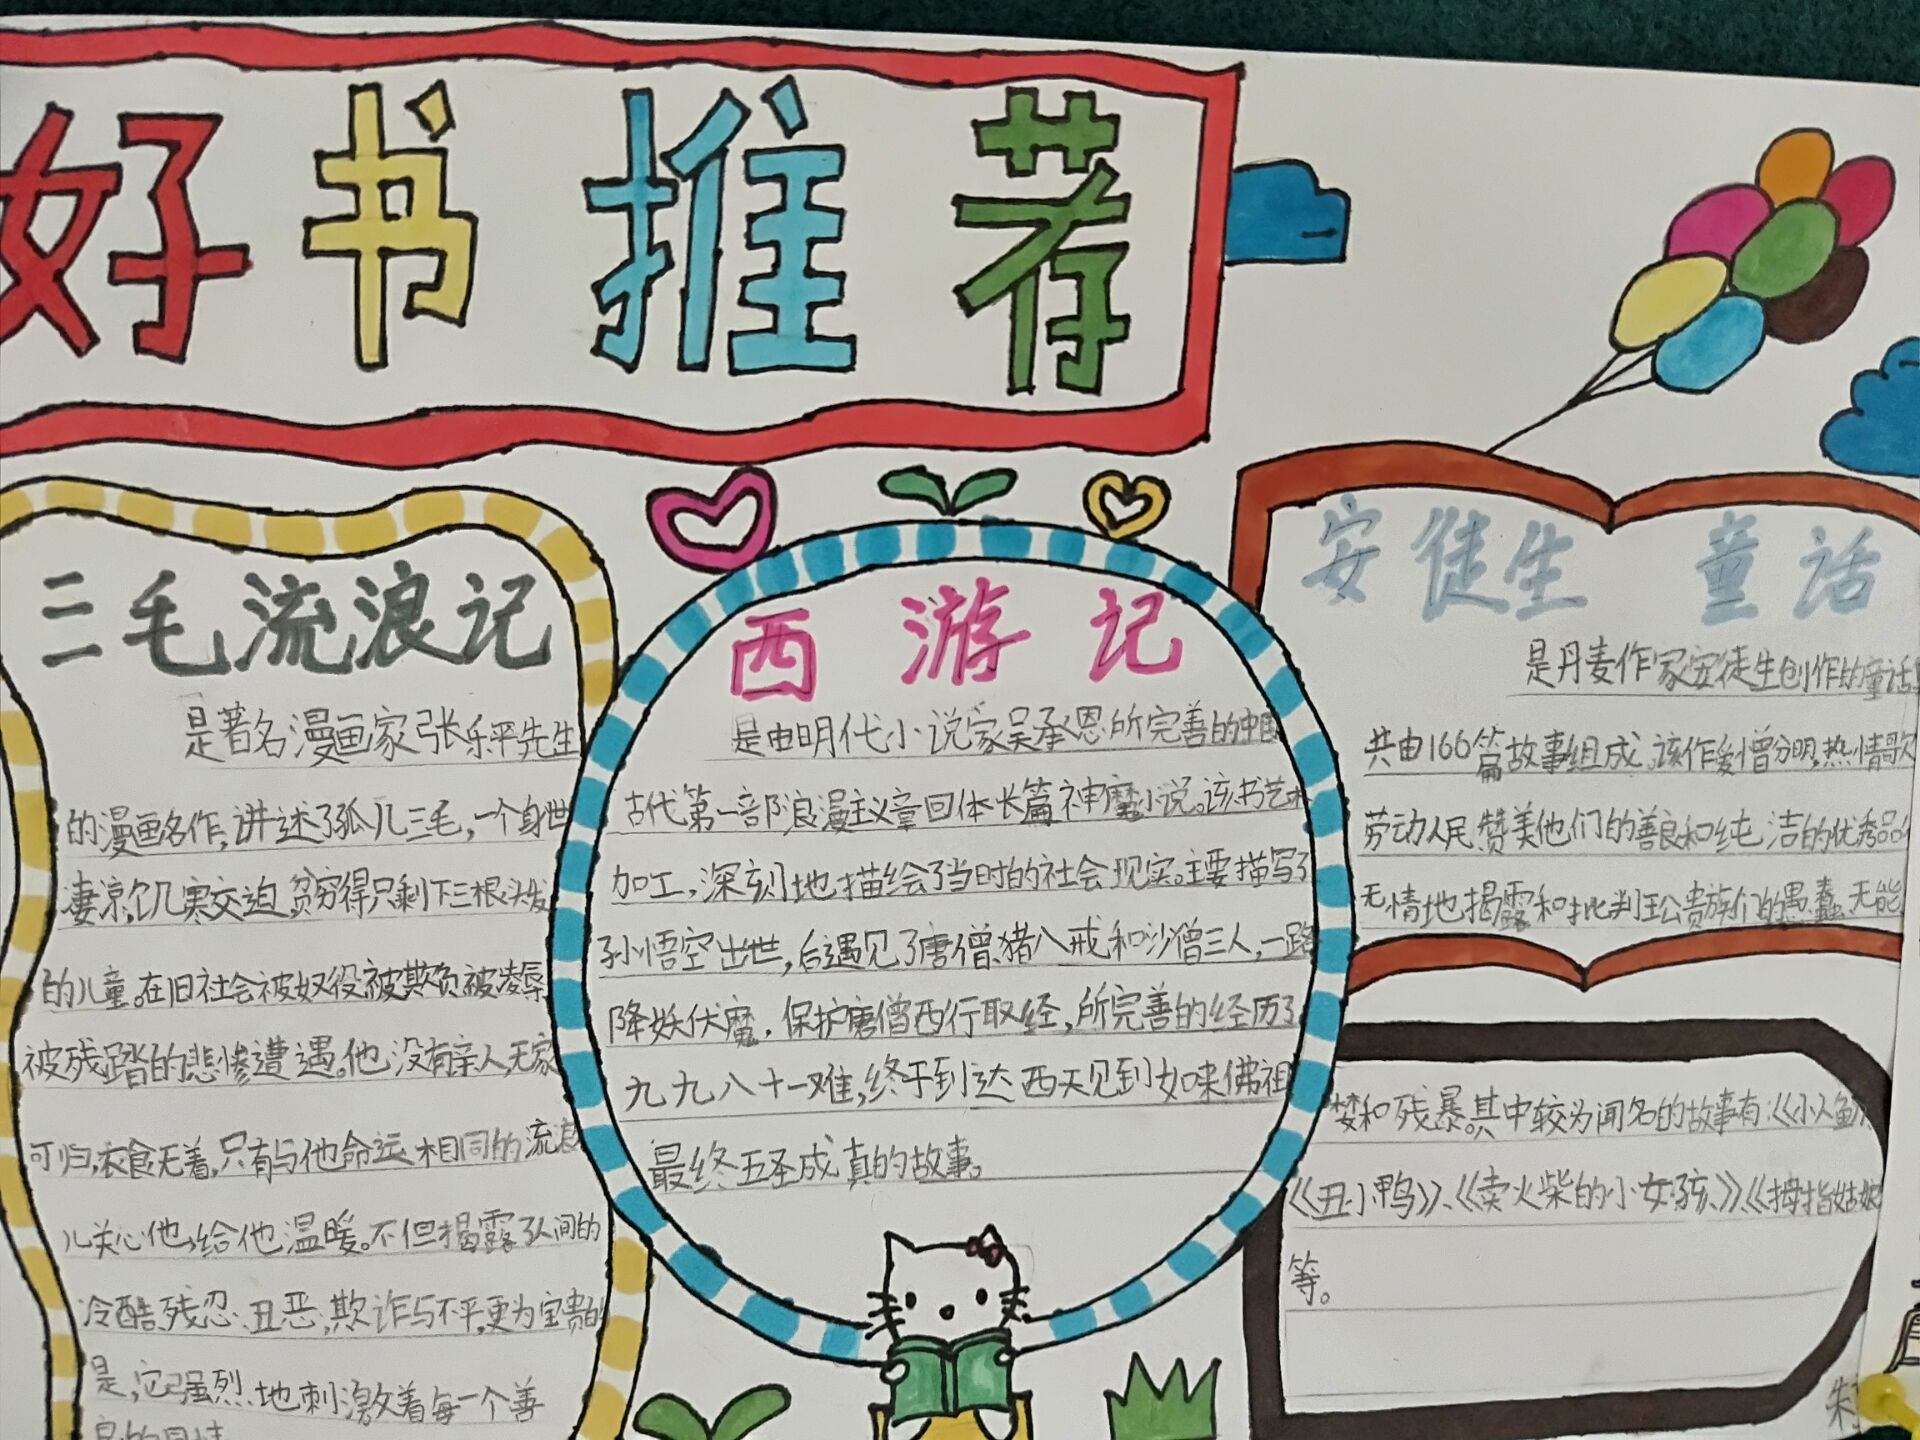 好书推荐
三毛流浪记
是著名漫画家张乐平先生
的漫画名作,讲述了孤儿三毛,一个身世
凄凉,饥寒交迫,贫穷得只剩下三根头发
的儿童。在旧社会被奴役被欺负被凌辱
被残踏的悲惨遭遇。他没有亲人,无家
可归,衣食无着,只有与他命运相同的流浪
儿关心他,给他温暖。不但揭露了人间的
冷酷、残忍、丑恶,欺诈与不平,更为宝贵的
是,它强烈地刺激着每一个善
西游记
是由明代小说家吴承恩所完善的中国
古代第一部浪漫主义章回体长篇神魔小说。该书艺术
加工,深刻地描绘了当时的社会现实。主要描写了
孙悟空出世,后遇见了唐僧、猪八戒和沙僧三人,一路
降妖伏魔,保护唐僧西行取经,所完善的经历了
九九八十一难,终于到达西天见到如来佛祖
最终五圣成真的故事。
安徒生 童话
是丹麦作家安徒生创作的童话
共由166篇故事组成,该作爱憎分明,热情歌
劳动人民,赞美他们的善良和纯洁的优秀品
无情地揭露和批判王公贵族们的愚蠢、无能
婪和残暴。其中较为闻名的故事有:《小人鱼
《丑小鸭》、《卖火柴的小女孩》、《拇指姑娘
等。
朱